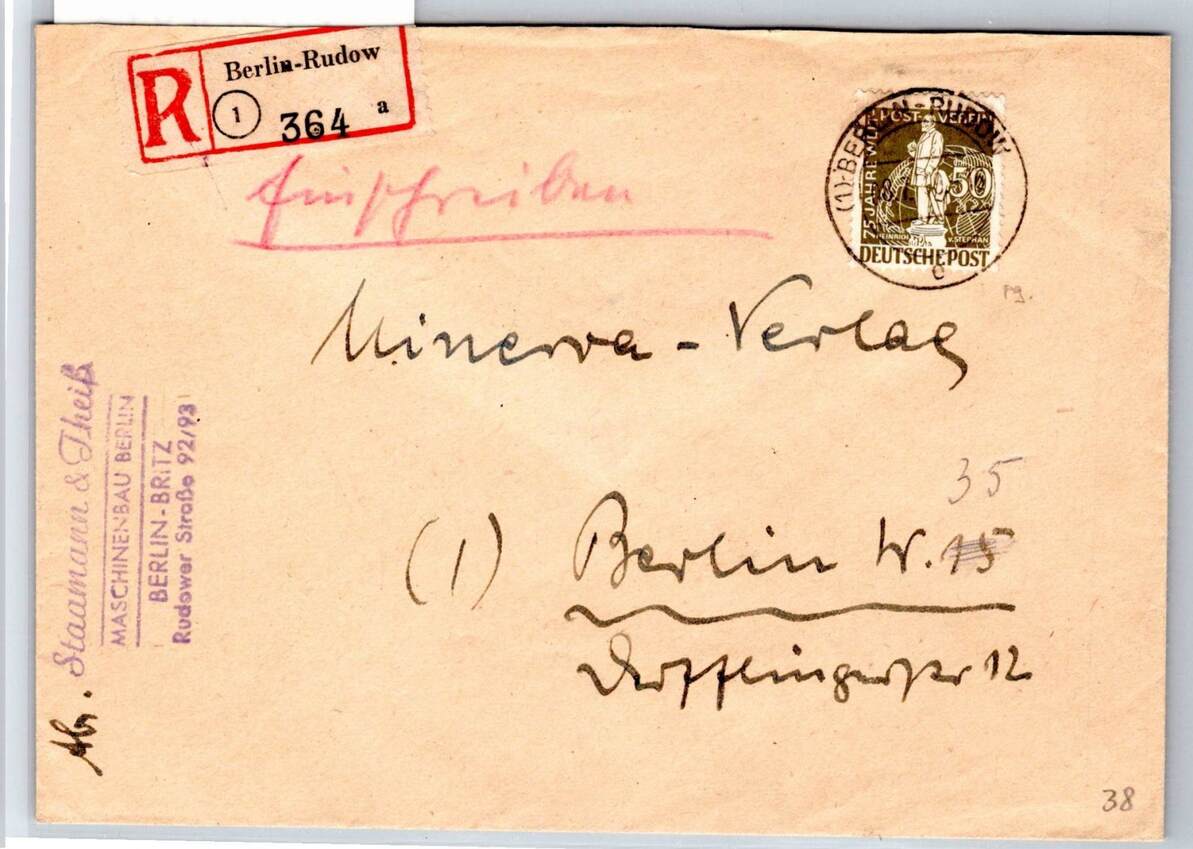 R
Berlin-Rudow
1
364 a
Einschreiben
(1) BERLIN-RUDOW
e
75 JAHRE WELTPOSTVEREIN
50
HEINRICH V. STEPHAN
DEUTSCHE POST
rg.
Minerva-Verlag
35
(1) Berlin W. 15
Derfflingerstr 12
Abs. Staamann & Theiß
MASCHINENBAU BERLIN
BERLIN-BRITZ
Rudower Straße 92/93
38